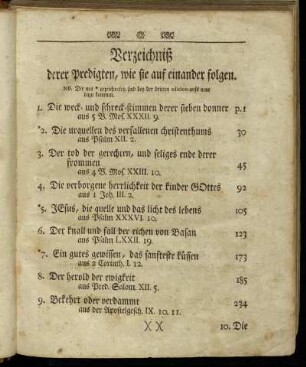 Verzeichniß
derer Predigten, wie sie auf einander folgen.
NB. Die mit * gezeichneten sind bey der dritten edition erst neu
dazu kommen.
1. Die weck- und schreck-stimmen derer sieben donner p. 1
aus 5 B. Mos. XXXII. 9.
*2. Die urquellen des verfallenen christenthums 30
aus Psalm XII. 2.
3. Der tod der gerechten, und seliges ende derer
frommen 45
aus 4 B. Mos. XXIII. 10.
4. Die verborgene herrlichkeit der kinder GOttes 92
aus 1 Joh. III. 2.
*5. JEsus, die quelle und das licht des lebens 105
aus Psalm XXXVI. 10.
6. Der knall und fall der eichen von Basan 123
aus Psalm LXXII. 19.
*7. Ein gutes gewissen, das sanfteste küssen 173
aus 2 Corinth. I. 12.
8. Der herold der ewigkeit 185
aus Pred. Salom. XII. 5.
9. Bekehrt oder verdammt 234
aus der Apostelgesch. IX. 10. 11.
XX 10. Die